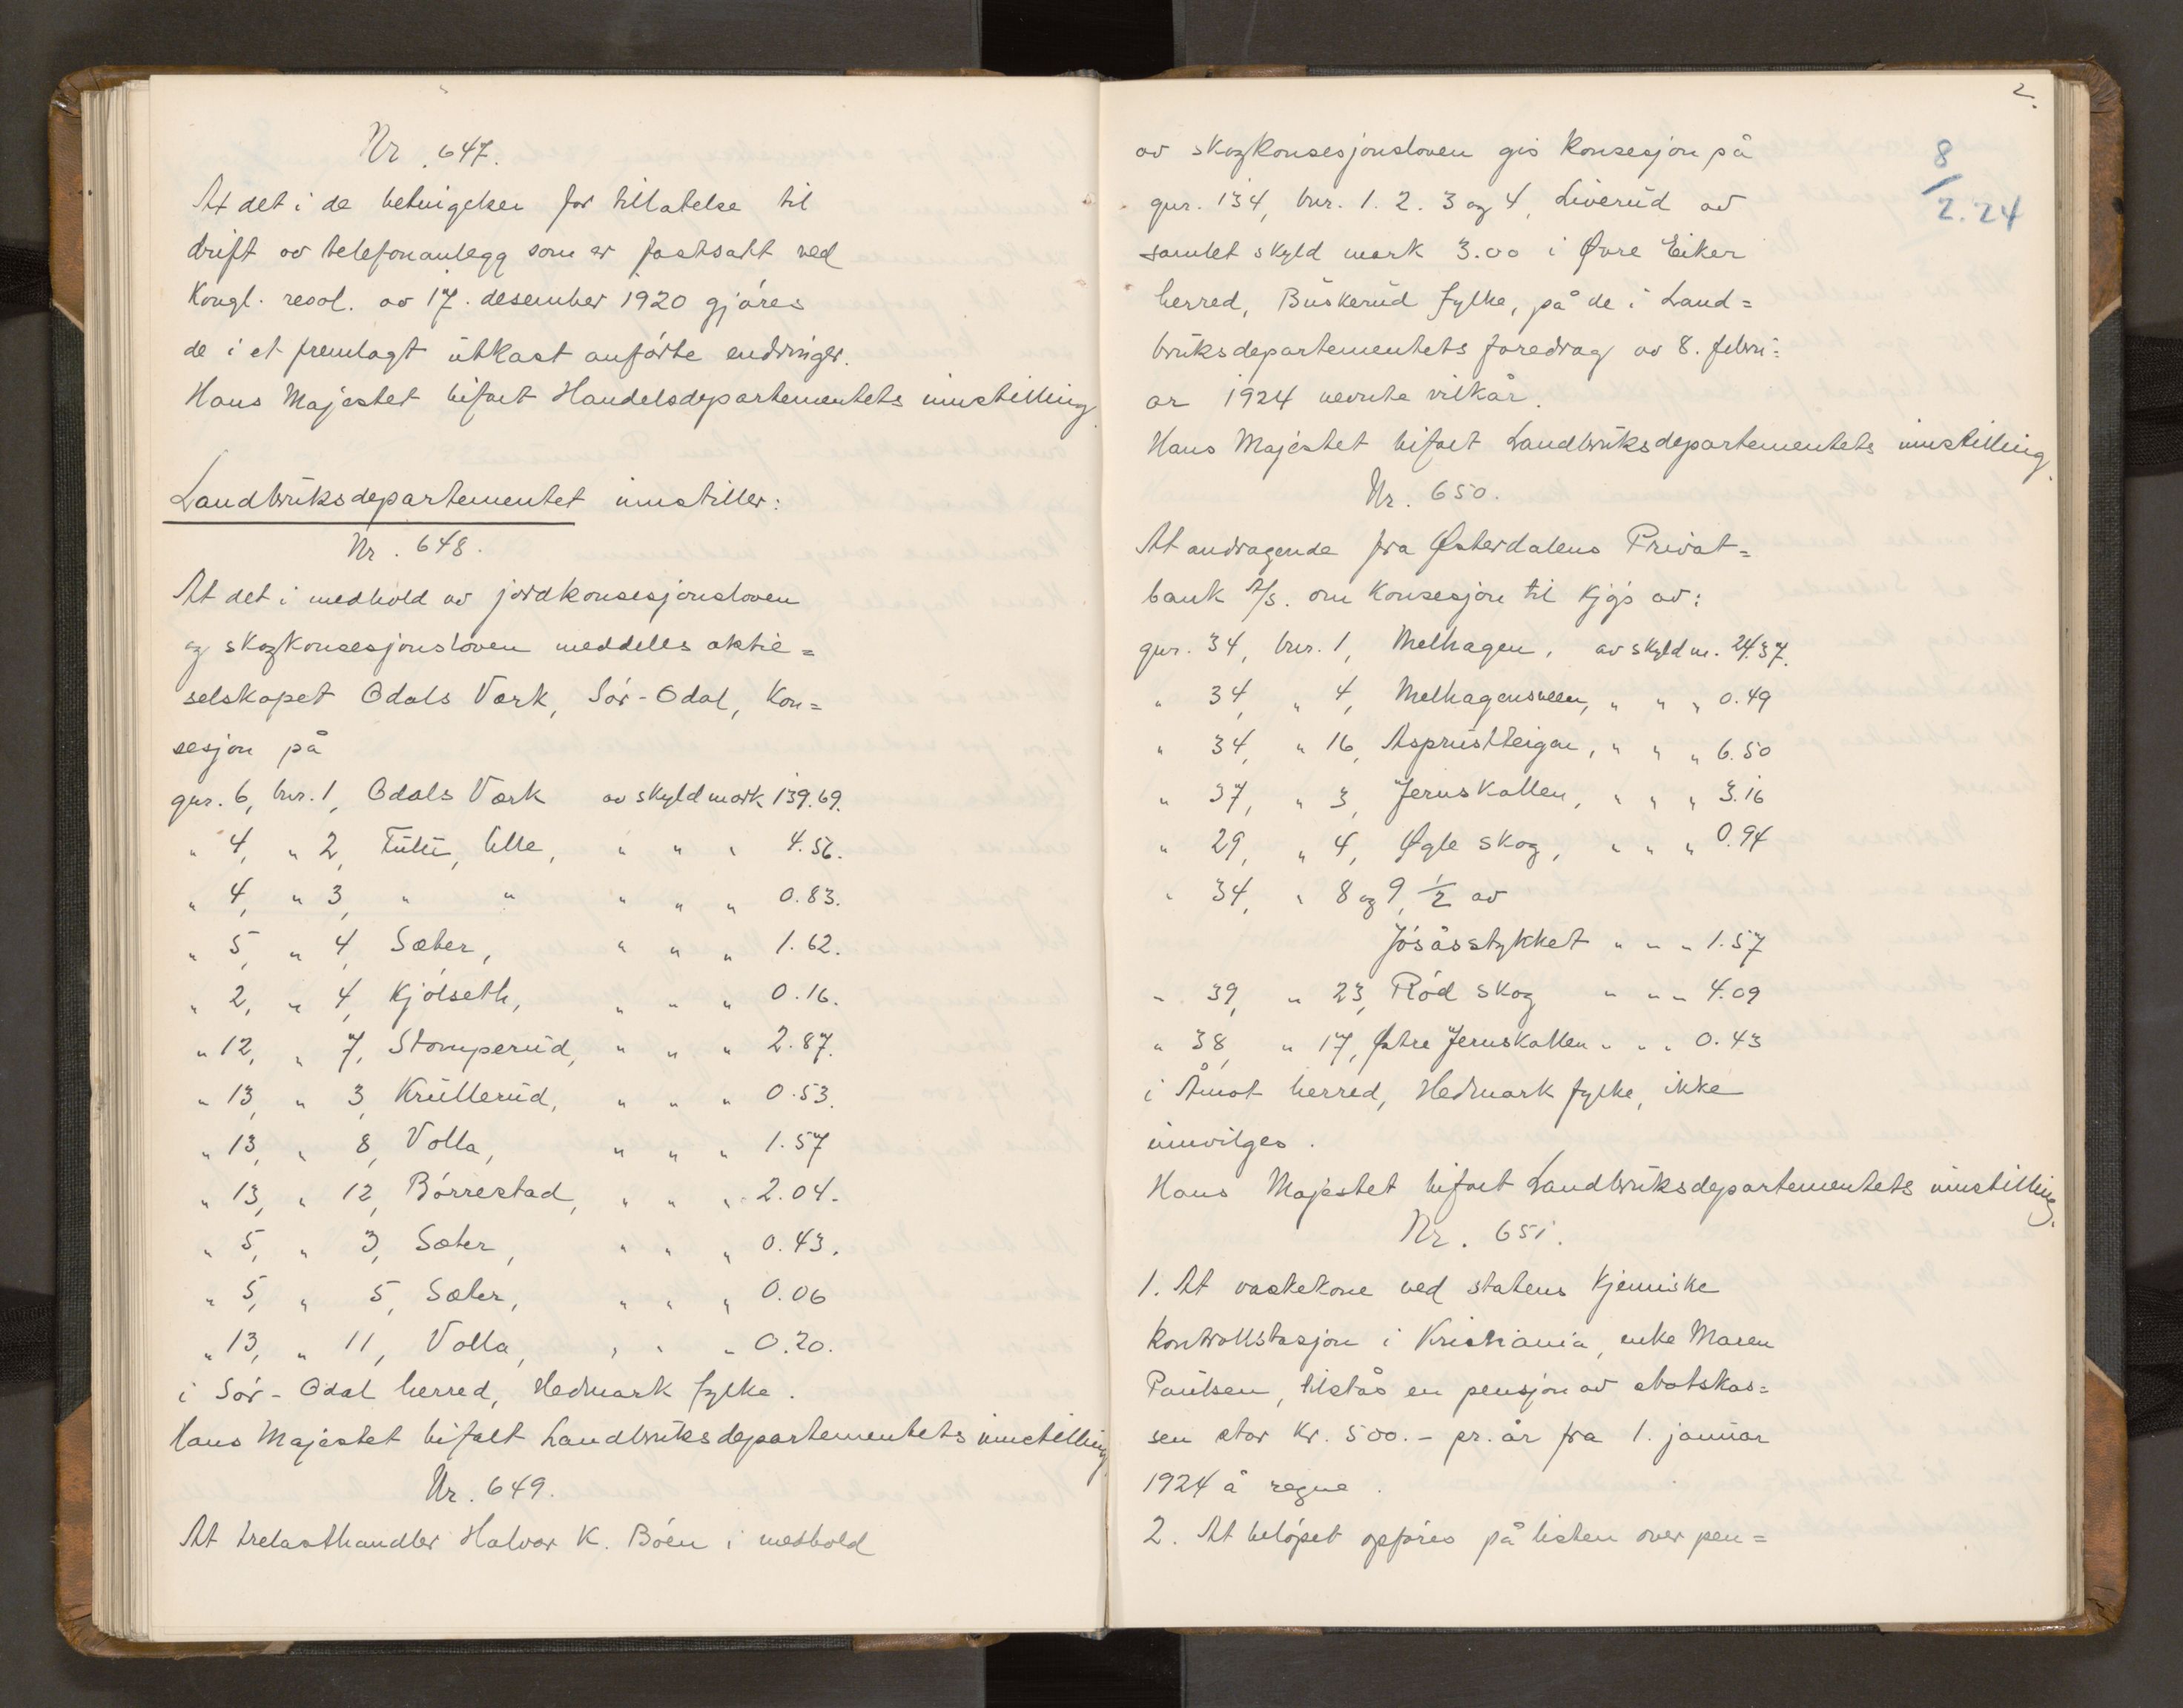 Nr. 647.
At det i de betingelser for tillatelse til
drift av telefonanlegg som er fastsatt ved
Kongl. resol. av 17. desember 1920 gjøres
de i et fremlagt utkast anførte endringer.
Hans Majestet bifalt Handelsdepartementets innstilling.
Landbruksdepartementet innstiller:
Nr. 648.
At det i medhold av jordkonsesjonsloven
og skogkonsesjonsloven meddeles aktie=
selskapet Odals Verk, Sør-Odal, kon=
sesjon på
gnr. 6, bnr. 1, Odals Verk av skyld mark 139.69.
" 4, " 2, Fulu, lille, " " " 4.56.
" 4, " 3, " " " " " 0.83.
" 5, " 4, Sæter, " " " 1.62.
" 2, " 4, Kjølseth, " " " 0.16.
" 12, " 7, Stomperud, " " " 2.87.
" 13, " 3, Krullerud, " " " 0.53.
" 13, " 8, Volla, " " " 1.57
" 13, " 12, Børrestad, " " " 2.04.
" 5, " 3, Sæter, " " " 0.43.
" 5, " 5, Sæter, " " " 0.06
" 13, " 11, Volla, " " " 0.20.
i Sør-Odal herred, Hedmark fylke.
Hans Majestet bifalt Landbruksdepartementets innstilling
Nr. 649.
At trelasthandler Halvor K. Bøen i medhold
2.
8/2.24
av skogkonsesjonsloven gis konsesjon på
gnr. 134, bnr. 1. 2. 3 og 4, Liverud av
samlet skyld mark 3.00 i Øvre Eiker
herred, Buskerud fylke, på de i Land=
bruksdepartementets foredrag av 8. febru=
ar 1924 nevnte vilkår.
Hans Majestet bifalt Landbruksdepartementets innstilling.
Nr. 650.
At andragende fra Østerdalens Privat=
bank A/S. om konsesjon til kjøp av:
gnr. 34, bnr. 1, Melhagen, av skyld m. 24.37.
" 34, " 4, Melhagensveen, " " " 0.49
" 34, " 16, Asprustteigen, " " " 6.50
" 37, " 3, Jernskallen, " " " 3.16
" 29, " 4, Øgle skog, " " " 0.94
" 34, " 8 og 9, 1/2 av
Jøsåsstykket " " " 1.57
" 39, " 23, Rød skog " " " 4.09
" 38, " 17, Østre Jernskallen " " " 0.43
i Åmot herred, Hedmark fylke, ikke
innvilges.
Hans Majestet bifalt Landbruksdepartementets innstilling.
Nr. 651.
1. At vaskekone ved statens kjemiske
kontrollstasjon i Kristiania, enke Maren
Paulsen, tilstås en pensjon av statskas=
sen stor kr. 500.- pr. år fra 1. januar
1924 å regne.
2. At beløpet opføres på listen over pen=